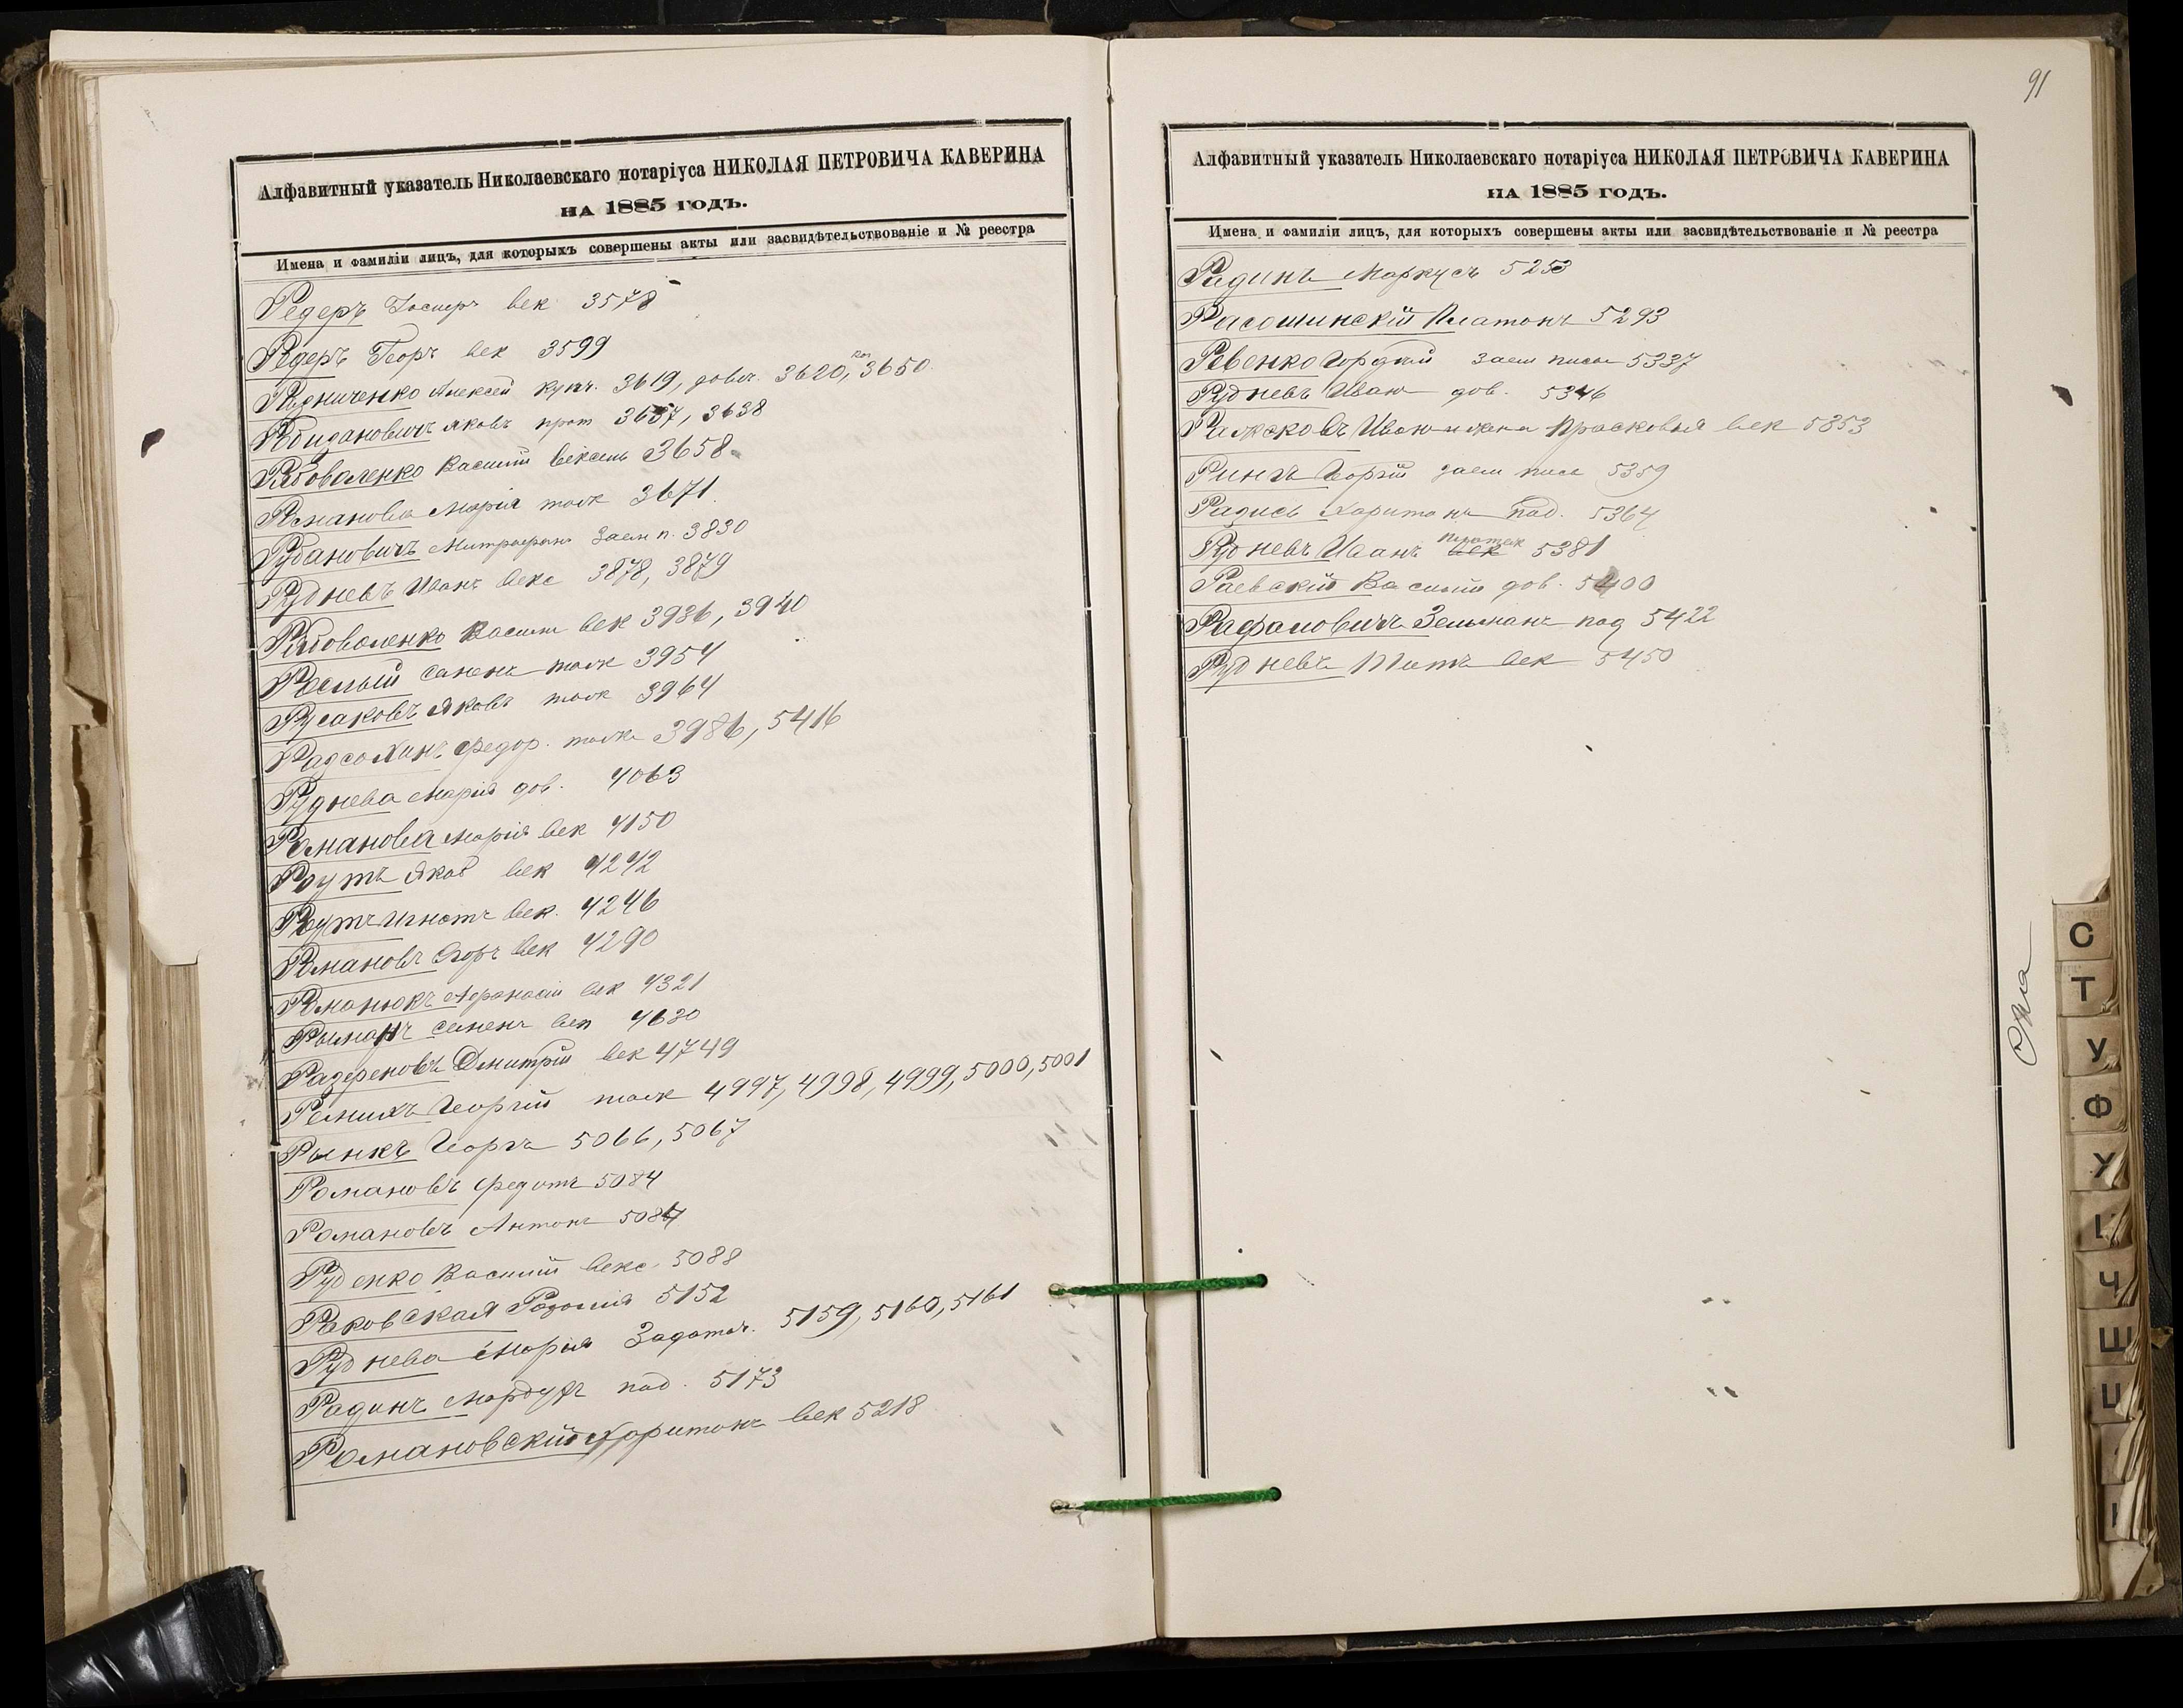 Алфавитный указатель Николаевскаго нотаріуса НИКОЛАЯ ПЕТРОВИЧА КАВЕРИНА
на 1885 годъ.
Имена и фамиліи лицъ, для которыхъ совершены акты или засвидѣтельствованіе и № реестра
Редеръ век 3578
Редеръ Георг век 3599
Редниченко Алексей купч. 3619, довѣр. 3620, 3650
Яковъ прот 3637, 3638
Рябоваленко Василій вексель 3658
Романова Марія торг 3671
Рубановичъ Митрофанъ Заем п. 3830
Рудневъ Иванъ векс 3878, 3879
Рябоваленко Василій век 3936, 3940
Рослый 3954
Русаковъ Яковъ 3964
Федор. 3986, 5416
Руднева Марія дов. 4063
Романова Марія век 4150
Роутъ Яков век 4242
Роутъ Игнатъ век. 4246
Романовъ Егоръ век 4290
Романюкъ Афанасій век 4321
Рыманъ Семенъ век 4630
Дмитрій век 4749
Георгій 4997, 4998, 4999, 5000, 5001
Рынкъ Георгъ 5066, 5067
Романовъ Федотъ 5084
Романовъ Антонъ 5084
Руденко Василій векс. 5088
Раковская Розалія 5152
Руднева Марія Задаточ. 5159, 5160, 5161
Радинъ Мордухъ под. 5173
Романовскій Харитонъ век 5218
91
Алфавитный указатель Николаевскаго нотаріуса НИКОЛАЯ ПЕТРОВИЧА КАВЕРИНА
на 1885 годъ.
Имена и фамиліи лицъ, для которыхъ совершены акты или засвидѣтельствованіе и № реестра
Радинъ Маркусъ 5253
Расошинскій Платонъ 5293
Ревенко Гордѣй заем письм 5337
Рудневъ Иван дов. 5346
Ражсковъ Иван и жена Прасковья век 5353
Рингъ Георгій заем писм 5359
Радись Харитонъ под. 5364
Рудневъ Иванъ век 5381
Раевскій Василій дов. 5400
Рафаловичъ Зельманъ под 5422
Рудневъ Титъ век 5450
С
Т
У
Ф
Х
Ц
Ч
Ш